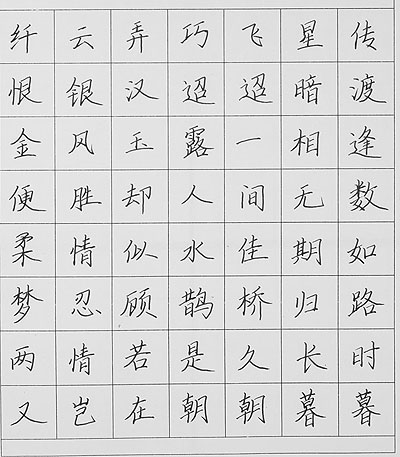 纤云弄巧飞星传
恨银汉迢迢暗渡
金风玉露一相逢
便胜却人间无数
柔情似水佳期如
梦忍顾鹊桥归路
两情若是久长时
又岂在朝朝暮暮